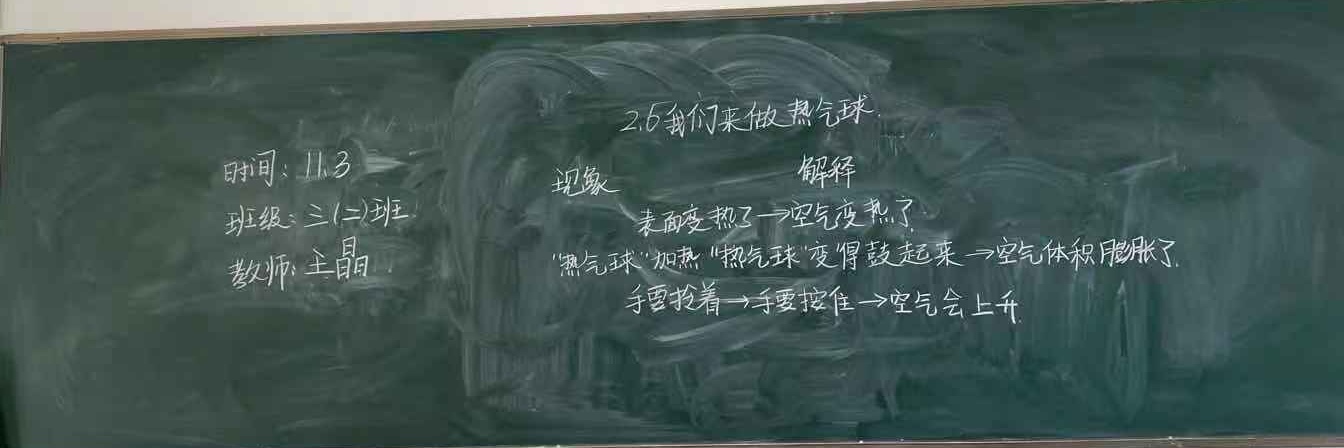 2.6我们来做热气球.
时间：11.3
班级：三(二)班
教师：王晶
现象 解释
表面变热了→空气变热了.
"热气球"加热"热气球"变得鼓起来→空气体积膨胀了.
手要拎着→手要按住→空气会上升.